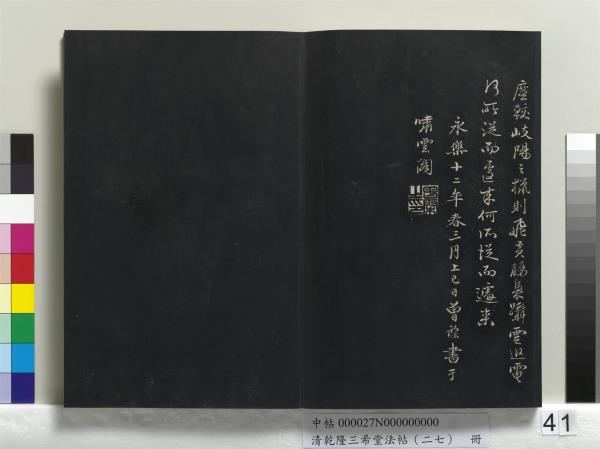 塵較岐陽之獵則飛黃騕褭躡雲追電
何所從而遽來何所從而遽來
永樂十二年春三月上巳日曾棨書于
嘯雲閣
中帖 000027N000000000
清乾隆三希堂法帖(二七) 冊
41